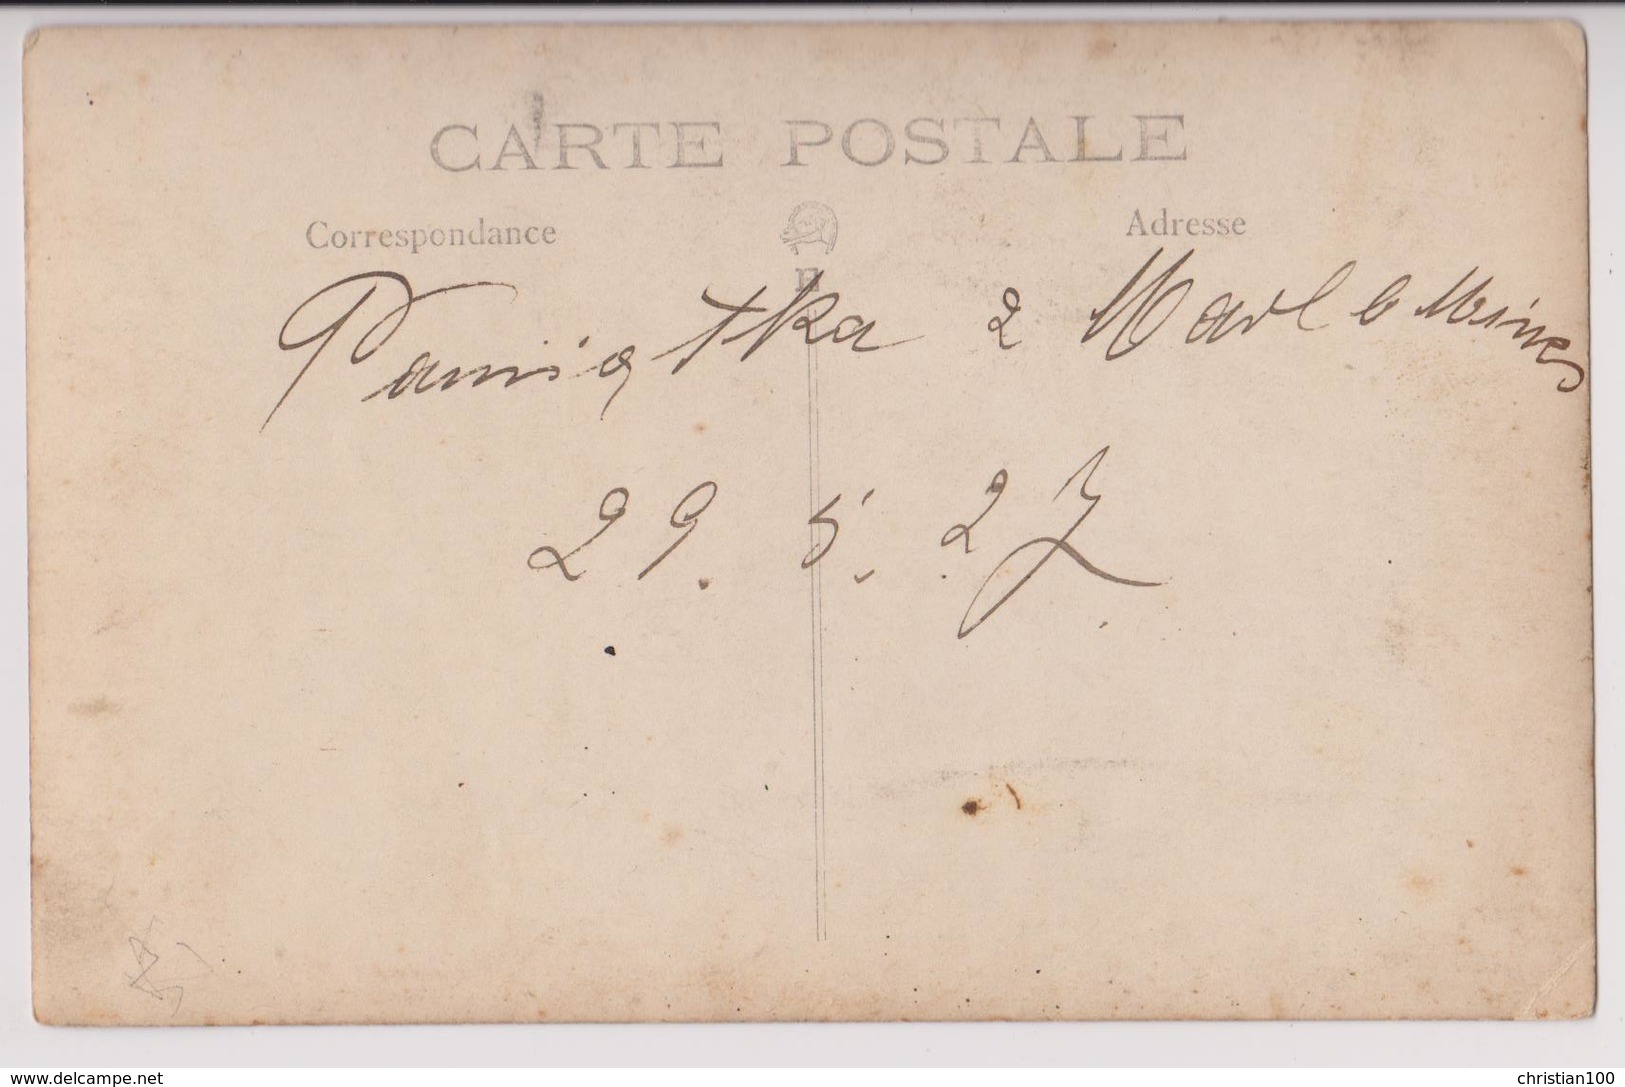 CARTE POSTALE
Correspondance
Adresse
E
Pamiątka z Marl b Mines
29. 5. 27
www.delcampe.net
christian100